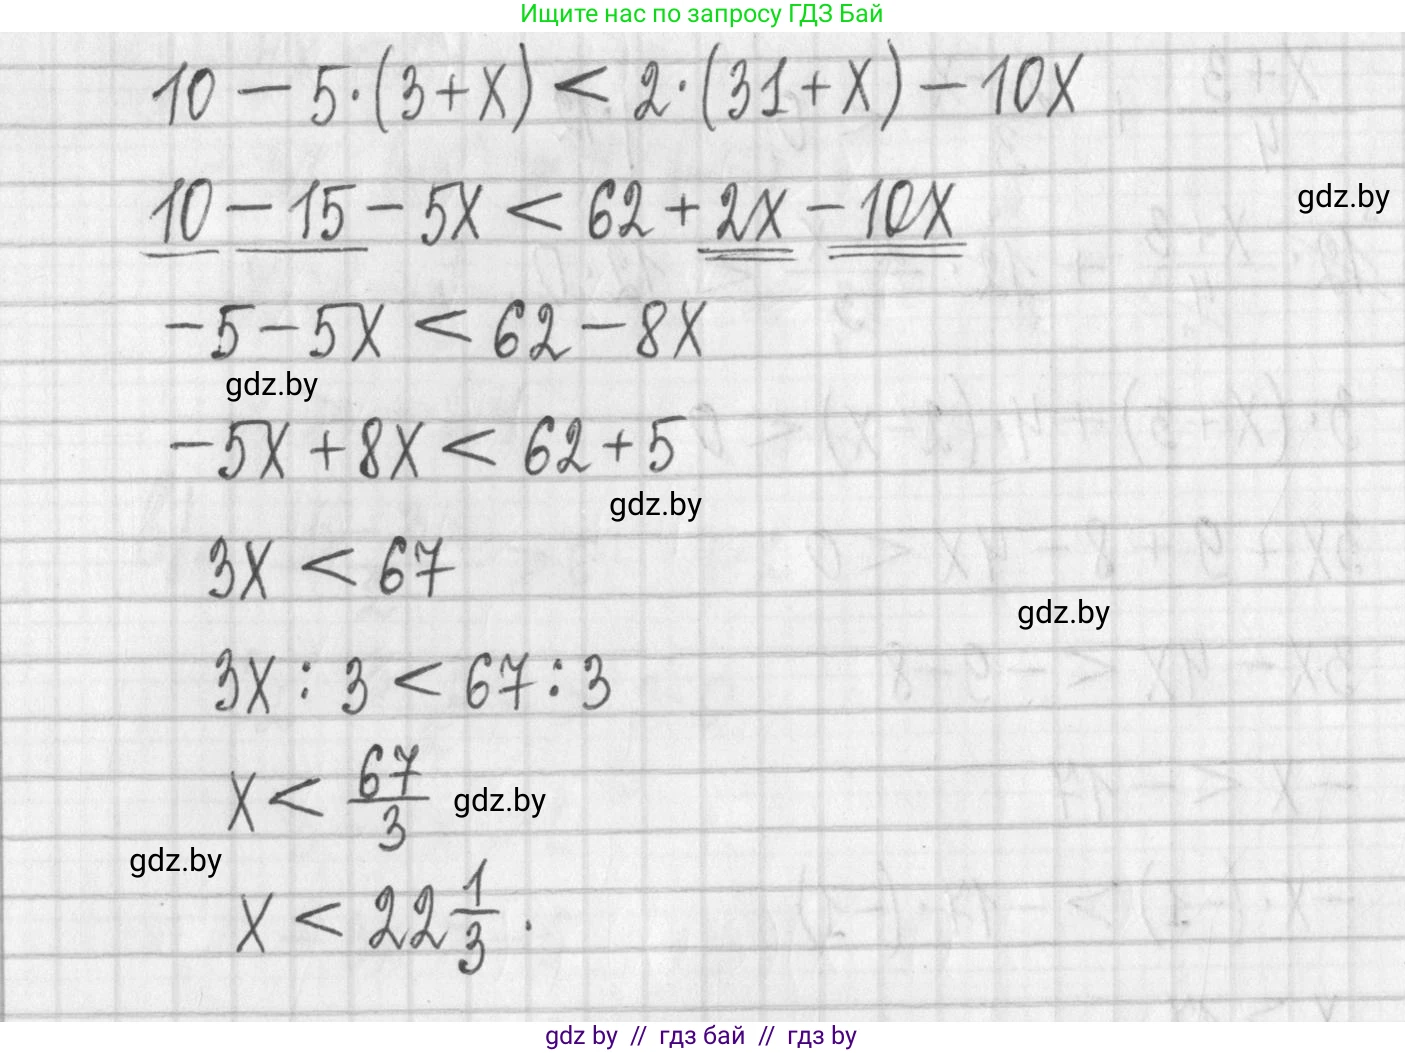 Ищите нас по запросу ГДЗ Бай
10 - 5·(3+x) < 2·(31+x) - 10x
10 - 15 - 5x < 62 + 2x - 10x
gdz.by
-5 - 5x < 62 - 8x
gdz.by
-5x + 8x < 62 + 5
gdz.by
3x < 67
gdz.by
3x : 3 < 67 : 3
x < 67/3
gdz.by
gdz.by
x < 22 1/3.
gdz by // гдз бай // гдз by